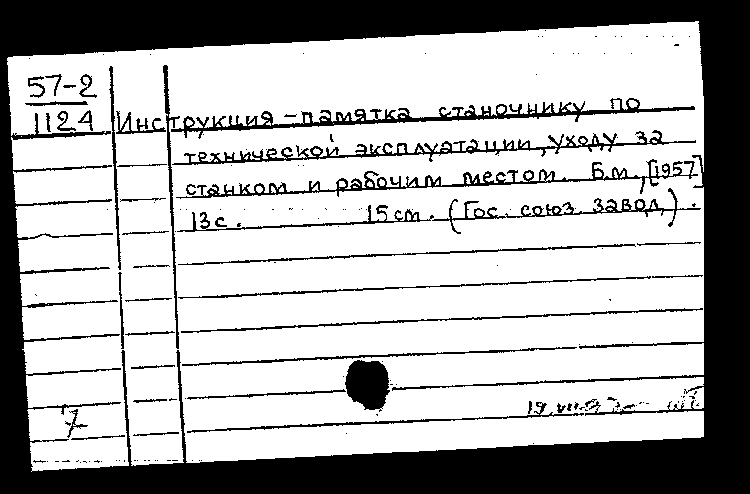 57-2
1124
Инструкция-памятка станочнику по
технической эксплуатации, уходу за
станком и рабочим местом. Б.м., [1957]
13 с. 15 см. (Гос. союз. завод).
7